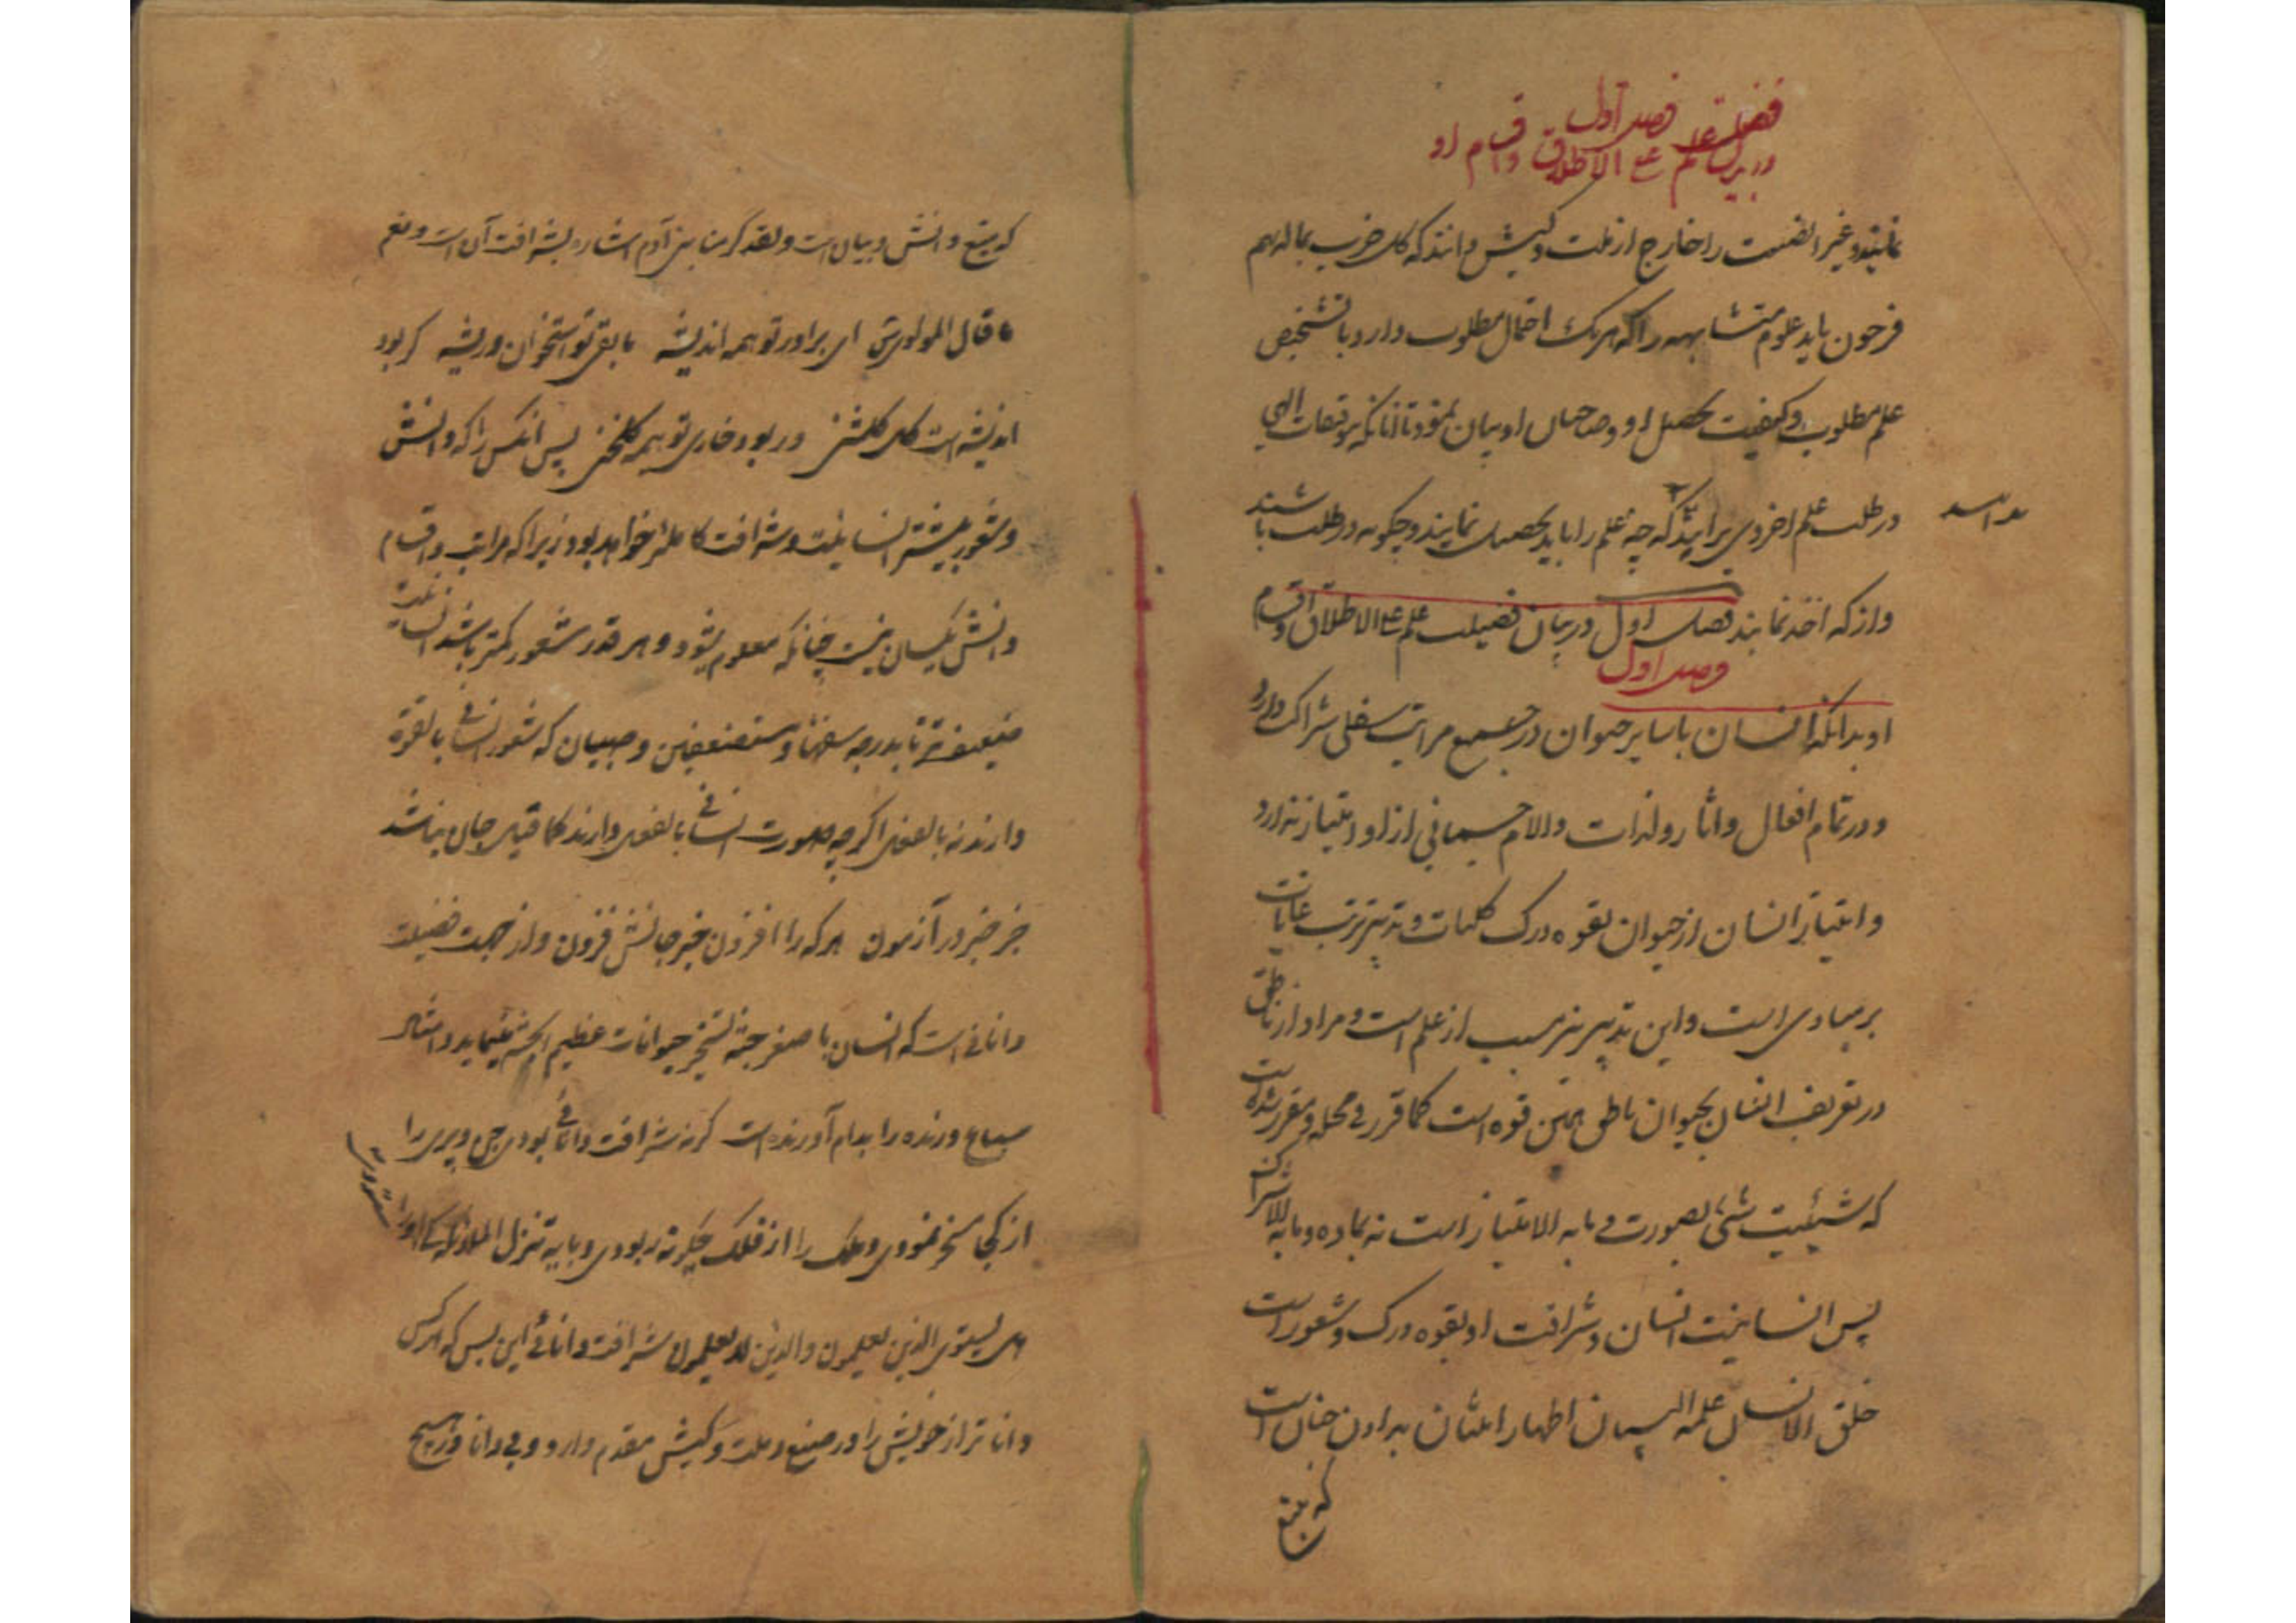 فصل اول
در بیان فضیلت علم علی الاطلاق و اقسام او
نمایند و غیر انفسیت را خارج از ملت و کیش دانند که کل حزب بما لدیهم
فرحون باید علوم متشابهه را که هر یک احتمال مطلوب دارد با تشخیص
علم مطلوب و کیفیت تحصیل او و صاحبان او بیان نمود تا آنانکه بتوفیقات الهی
در طلب علم اخروی برایند که چه علم را باید تحصیل نمایند و چگونه در طلب باشند
و از که اخذ نمایند فصل اول در بیان فضیلت علم علی الاطلاق و اقسام
فصل اول
او بدانکه انسان با سایر حیوان در جمیع مراتب سفلی شراکت دارد
و در تمام افعال و آثار و لذات و الام جسمانی از او امتیاز ندارد
و امتیاز انسان از حیوان بقوه درک کلیات و تدبیر ترتب غایات
بر مبادی است و این تدبیر نیز مسبب از علم است و مراد از ناطق
در تعریف انسان بحیوان ناطق همین قوه است کما قرر فی محله و مقرر شده است
که شیئیت شئ بصورت و ما به الامتیاز است نه بماده و ما به الاشتراک
پس انسانیت انسان و شرافت او بقوه درک و شعور است
خلق الانسان علمه البیان اظهار امتنان بدادن چنان است
که بتبع
که بتبع دانش و بیان است و لقد کرمنا بنی آدم اشاره بشرافت آن است و نعم
ما قال المولوی ای برادر تو همه اندیشه ما بقی تو استخوان و ریشه گر بود
اندیشه ات گل گلشنی ور بود خاری تو همه گلخنی پس انکس را که دانش
و شعور بیشتر انسانیت و شرافت کاملتر خواهد بود زیرا که مراتب و اقسام
دانش یکسان نیست چنانکه معلوم شود و هر قدر شعور کمتر باشد انسانیت
ضعیفتر تا بدرجه سفها و مستضعفین و صبیان که شعور انسانی بالقوة
دارند نه بالفعل اگر چه صورت انسانی بالفعل دارند کما قیل جان نباشد
جز خبر در آزمون هر که را افزون خبر جانش فزون و از جهت فضیلت
دانائی است که انسان با صغر جثه تسخیر حیوانات عظیم الجثه مینماید و امثال
سباع درنده را بدام آورنده است گر نه شرافت دانائی بودی جن و پری را
از کجا مسخر نمودی و ملک را از فلک چگونه ربودی و بایه تنزل الملائکه او را
هل یستوی الذین یعلمون و الذین لا یعلمون شرافت دانائی این بس که هر کس
داناتر از خویش را در صنع و ملت و کیش مقدم دارد و بی دانا در هیچ